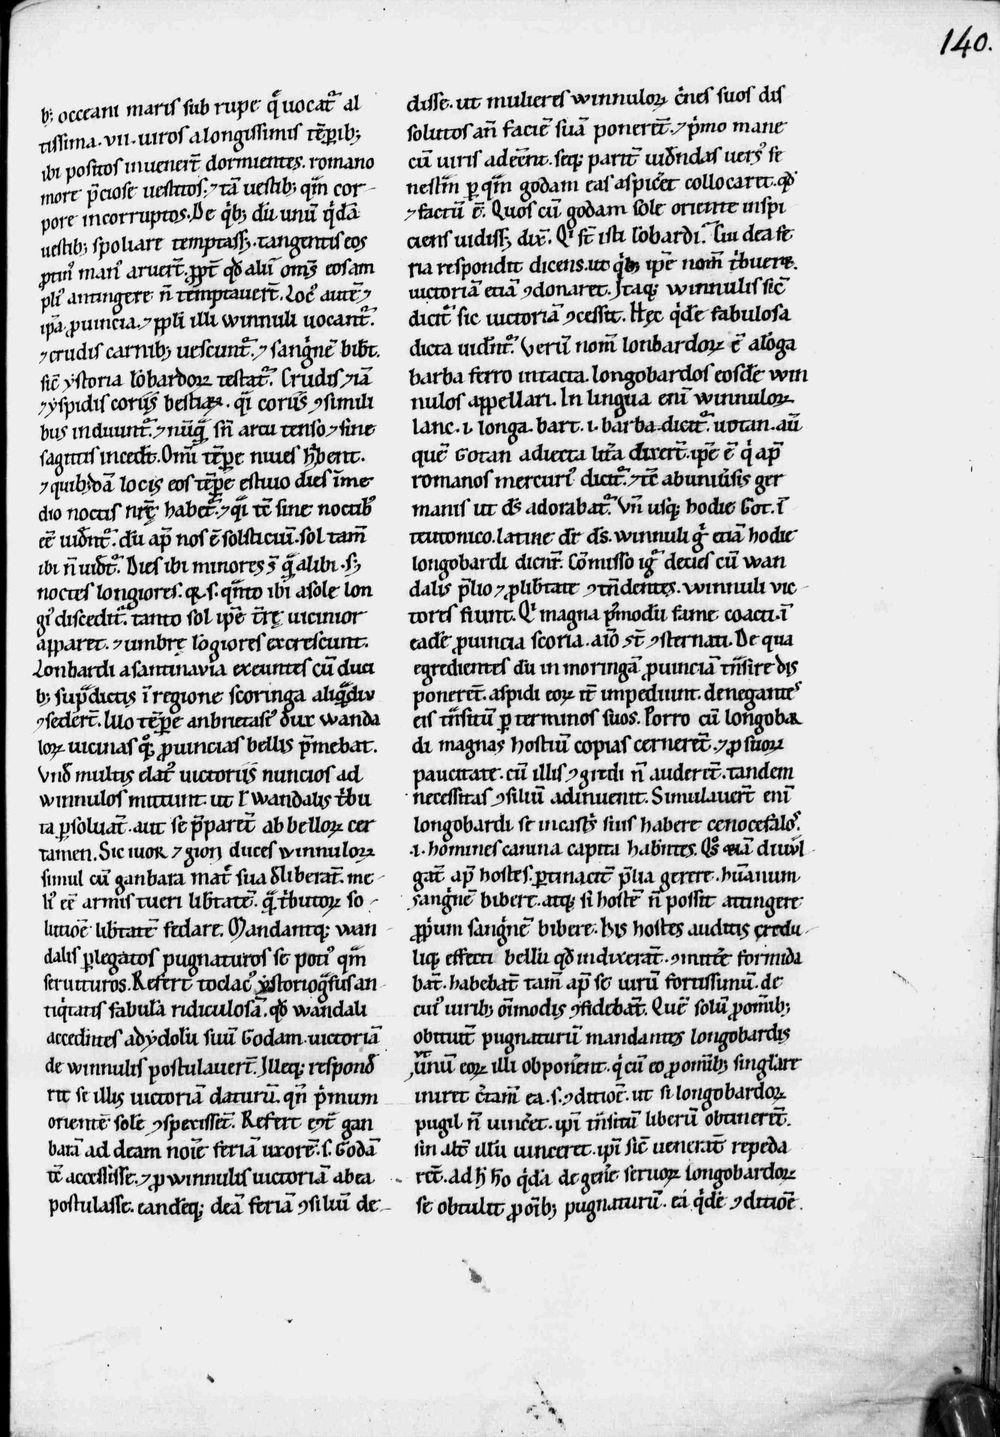 140.
b; occeani maris sub rupe q̄ uocat᷑ al
tissima. vii. uiros a longissimis tēporib;
ibi positos inuenert̄ dormientes. romano
more p̄ciose uestitos. ⁊ tā uestib; qm̄ cor-
pore incorruptos. De q̇b; dū unū q̇dā
uestib; spoliare temptass;. tangentis eos
ptin᷒ man᷒ aruert̄. ꝓpt̄ qd̄ alii om̄s eos am
pli᷒ antingere n̄ temptauert̄. Loc᷒ autē ⁊
ipa ꝓuincia. ⁊ ppli illi winnuli uocant᷑.
⁊ crudis carnib; uescunt᷑. ⁊ sangnē bibt̄.
sic̄ ystoria lōbardoꝝ testat᷑. Crudis ⁊ iā
⁊ yspidis coriis bestiaꝝ. qi coriis ꝯsimili
bus induunt᷑. ⁊ nūq̄ sn̄ arcu tenso ⁊ sine
sagittis incedt̄. Omī tēpe niues hn̄t.
⁊ quibdā locis eos tēpe estiuo dies īme
dio noctis nrę habet᷑. ⁊ qi tc̄ sine noctib᷒
eē uidnt᷑. dū ap̄ nos ē solsticiū. sol tam̄
ibi n̄ uidt᷑. Dies ibi minores s̄ q̄ alibi. s;
noctes longiores. q. s. qn̄to ibi a sole lon
gi᷒ discedit᷑. tanto sol ipē t̄rę uicinior
apparet. ⁊ umbrę lōgiores excrescunt.
Lonbardi a santinavia exeuntes cū duci
b; sup̄dictis ī regione scoringa aliq̄diu
ꝯsedert̄. Illo tēpe anbrietas᷒ dux wanda
loꝝ uicinas q̄; ꝓuincias bellis p̄mebat.
Und̄ multis elat᷒ uictoriis nuncios ad
winnulos mittunt. ut l̄ wandalis t̄bu
ta psoluāt. aut se p̄parēt ab belloꝝ cer
tamen. Sic iuor ⁊ gion duces winnuloꝝ
simul cū ganbara mat̄ sua d̄liberāt. me-
li᷒ eē armis tueri lib̄tatē. q̄ t̄butoꝝ so-
lutiōe lib̄tatē fedare. Mandantq; wan
dalis p legatos pugnaturos se poti᷒ qm̄
seruituros. Refert toclac᷒ ystoriogfus an-
tiq̇tatis fabulā ridiculosā. qd̄ wandali
accedntes ad ydolū suū Godam. uictoriā
de winnulis postulauert̄. Illeq; respond̄
rit se illis uictoriā daturū. qn̄ p̄mum
orientē sole ꝯspexissēt. Refert et̄ gan
barā ad deam noīe feriā uxorē. s. Godā
tc̄ accessisse. ⁊ ꝓ winnulis uictoriā ab ea
postulasse. eandēq; deā feriā ꝯsiliū de-
disse. ut mulieres winnuloꝝ c̄nes suos dis
solutos an̄ faciē suā ponerēt. ⁊ p̄mo mane
cū uiris adeēnt. seq; parit̄ uidn̄das uers᷒ fe
nestrā p qm̄ godam eas aspicēt collocarēt. qd̄
⁊ factū ē. Quos cū godam sole oriente inspi-
ciens uidiss; dix̄. Qi st̄ isti lōbardi. Cui dea fe
ria respondit dicens. ut q̇b; ipē nom̄ t̄buere.
uictoriā etiā ꝯdonaret. Itaq; winnulis sic̄
dicit᷑ sic uictoriā ꝯcessit. Hęc q̇dē fabulosa
dicta uidn̄t᷑. Verū nom̄ lonbardoꝝ ē a lōga
barba ferro intacta. longobardos eosdē win
nulos appellari. In lingua enī winnuloꝝ
lanc. i. longa. bart. i. barba dicit᷑. uotan. aū
quē Gotan adiecta lit̄a dixert̄. ipē ē q̇ ap̄
romanos mercuri᷒ dicit᷑. ⁊ tc̄ ab uniūsis ger
manis ut ds̄ adorabat᷑. Vn̄ usq; hodie Got. ī
teutonico. latine dr̄ ds̄. winnuli g̊ etiā hodie
longobardi dicn̄t. Cōmisso ig᷑ decies cū wan
dalis p̄lio ⁊ ꝓ lib̄tate ꝯtn̄dentes. winnuli vic-
tores fiunt. Qi magna p̄modū fame coacti. ī
eadē ꝓuincia scoria. aīo st̄ ꝯsternati. De qua
egredientes dū in moringā ꝓuinciā tn̄sire dis
ponerēt. aspidi eoꝝ it̄ impediunt. denegantes
eis tn̄situ p terminos suos. Porro cū longobar
di magnas hostiū copias cernerēt. ⁊ ꝓ suoꝝ
paucitate. cū illis ꝯgredi n̄ auderēt. tandem
necessitas ꝯsiliū adinuenit. Simulauert̄ enī
longobardi se in castris suis habere cenocefalos.
.i. homines canina capita habn̄tes. diuul-
gāt ap̄ hostes. ptinacit̄ p̄lia gerere. hūanum
sangnē bibere. atq; si hostē n̄ possit attingere
ꝓpum sangnē bibere. His hostes auditis credu-
liq; effecti bellū qd̄ indixerāt. ꝯmittē formida
bāt. habebāt tam̄ ap̄ se uirū fortissimū. de
cui᷒ uirib; oīmodis ꝯfidebāt. Quē solū ꝓ om̄ib;
obtulit pugnaturū mandantes longobardis
unū eoꝝ illi obponēnt. q̇ cū eo ꝓ om̄ib; singlāre
iniret c̄tam̄ ea. s. ꝯditiōe. ut si longobardoꝝ
pugil n̄ uincēt. ipi tn̄sitū liberū obtinerēt.
sin alit̄ illū uinceret. ipi sic̄ uenerāt repeda
rēt. ad h̄ ho q̇dā de genē seruoꝝ longobardoꝝ
se obtulit ꝓ oīb; pugnaturū. ea q̇dē ꝯditiōe.